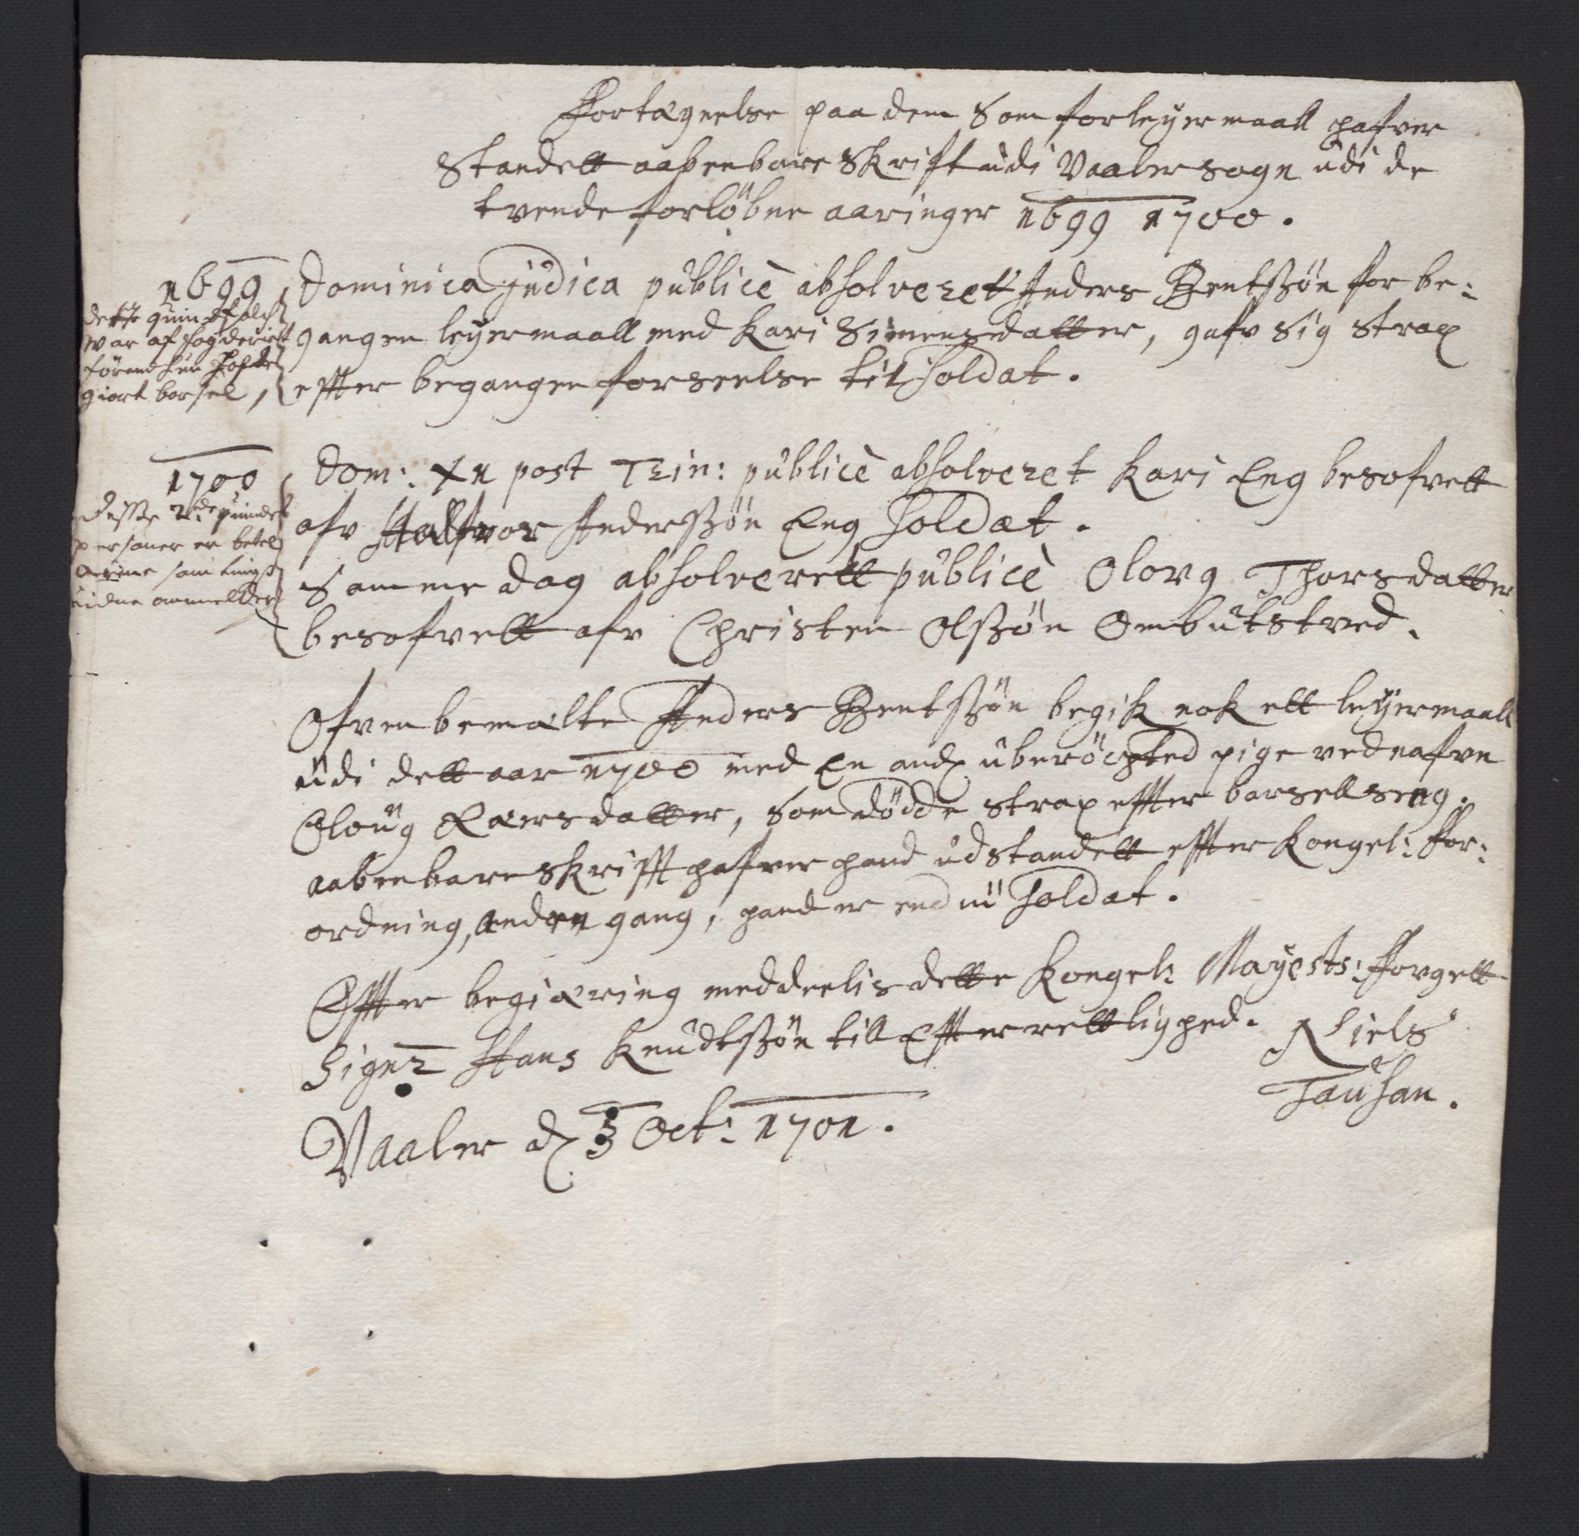 Fortægnelse paa dem Som for leyermaall hafver
Standett aabenbare Skrift udi Vaaler sogn udi de
tvende forløbne aaringer 1699 1700.
1699
dette quindfolch
var af fogderiet
førend hun hafde
giort barsel,
Dominica judica publicè absolveret Anders Bentßøn for be-
gangen leyermaall med Kari Simensdatter, gafv sig strax
effter begangen forseelse til soldat.
1700
diße 2de quindes
personer er betel
arme som
anmelder
Dom: XII post Trin: publicè absolveret Kari Eng besofvett
afv Halfvor Anderßøn Eng soldat.
Samme dag absolverett publicè Olovg Thorsdatter
besofvett afv Christen Olßøn Ombutstved.
Ofvenbemælte Anders Bentßøn begik nok ett leyermaall
udi dett aar 1700 med en and uberöcted pige ved nafvn
Eloug Larsdatter, som dödde strax effter barsellseng.
aabenbare skrifft hafver hand udstandett effter Kongel: For-
ordning, anden gang, hand er end nu soldat.
Effter begiæring meddeelis dette Kongel: Mayests: Fovgett
Signr Hans Knudtßøn till Effterrettlighed. Niels
Tausan.
Vaaler d 3 Oct: 1701.